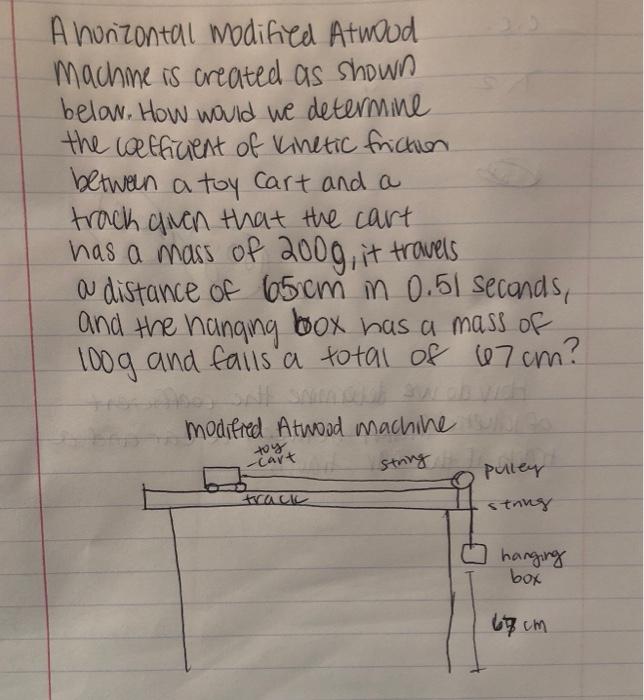 A horizontal modified Atwood
Machine is created as shown
below. How would we determine
the coefficient of kinetic friction
between a toy cart and a
track given that the cart
has a mass of 200g, it travels
a distance of 65cm in 0.51 seconds,
and the hanging box has a mass of
100g and falls a total of 67cm?
modified Atwood machine
toy
cart
string
pulley
track
string
hanging
box
cm